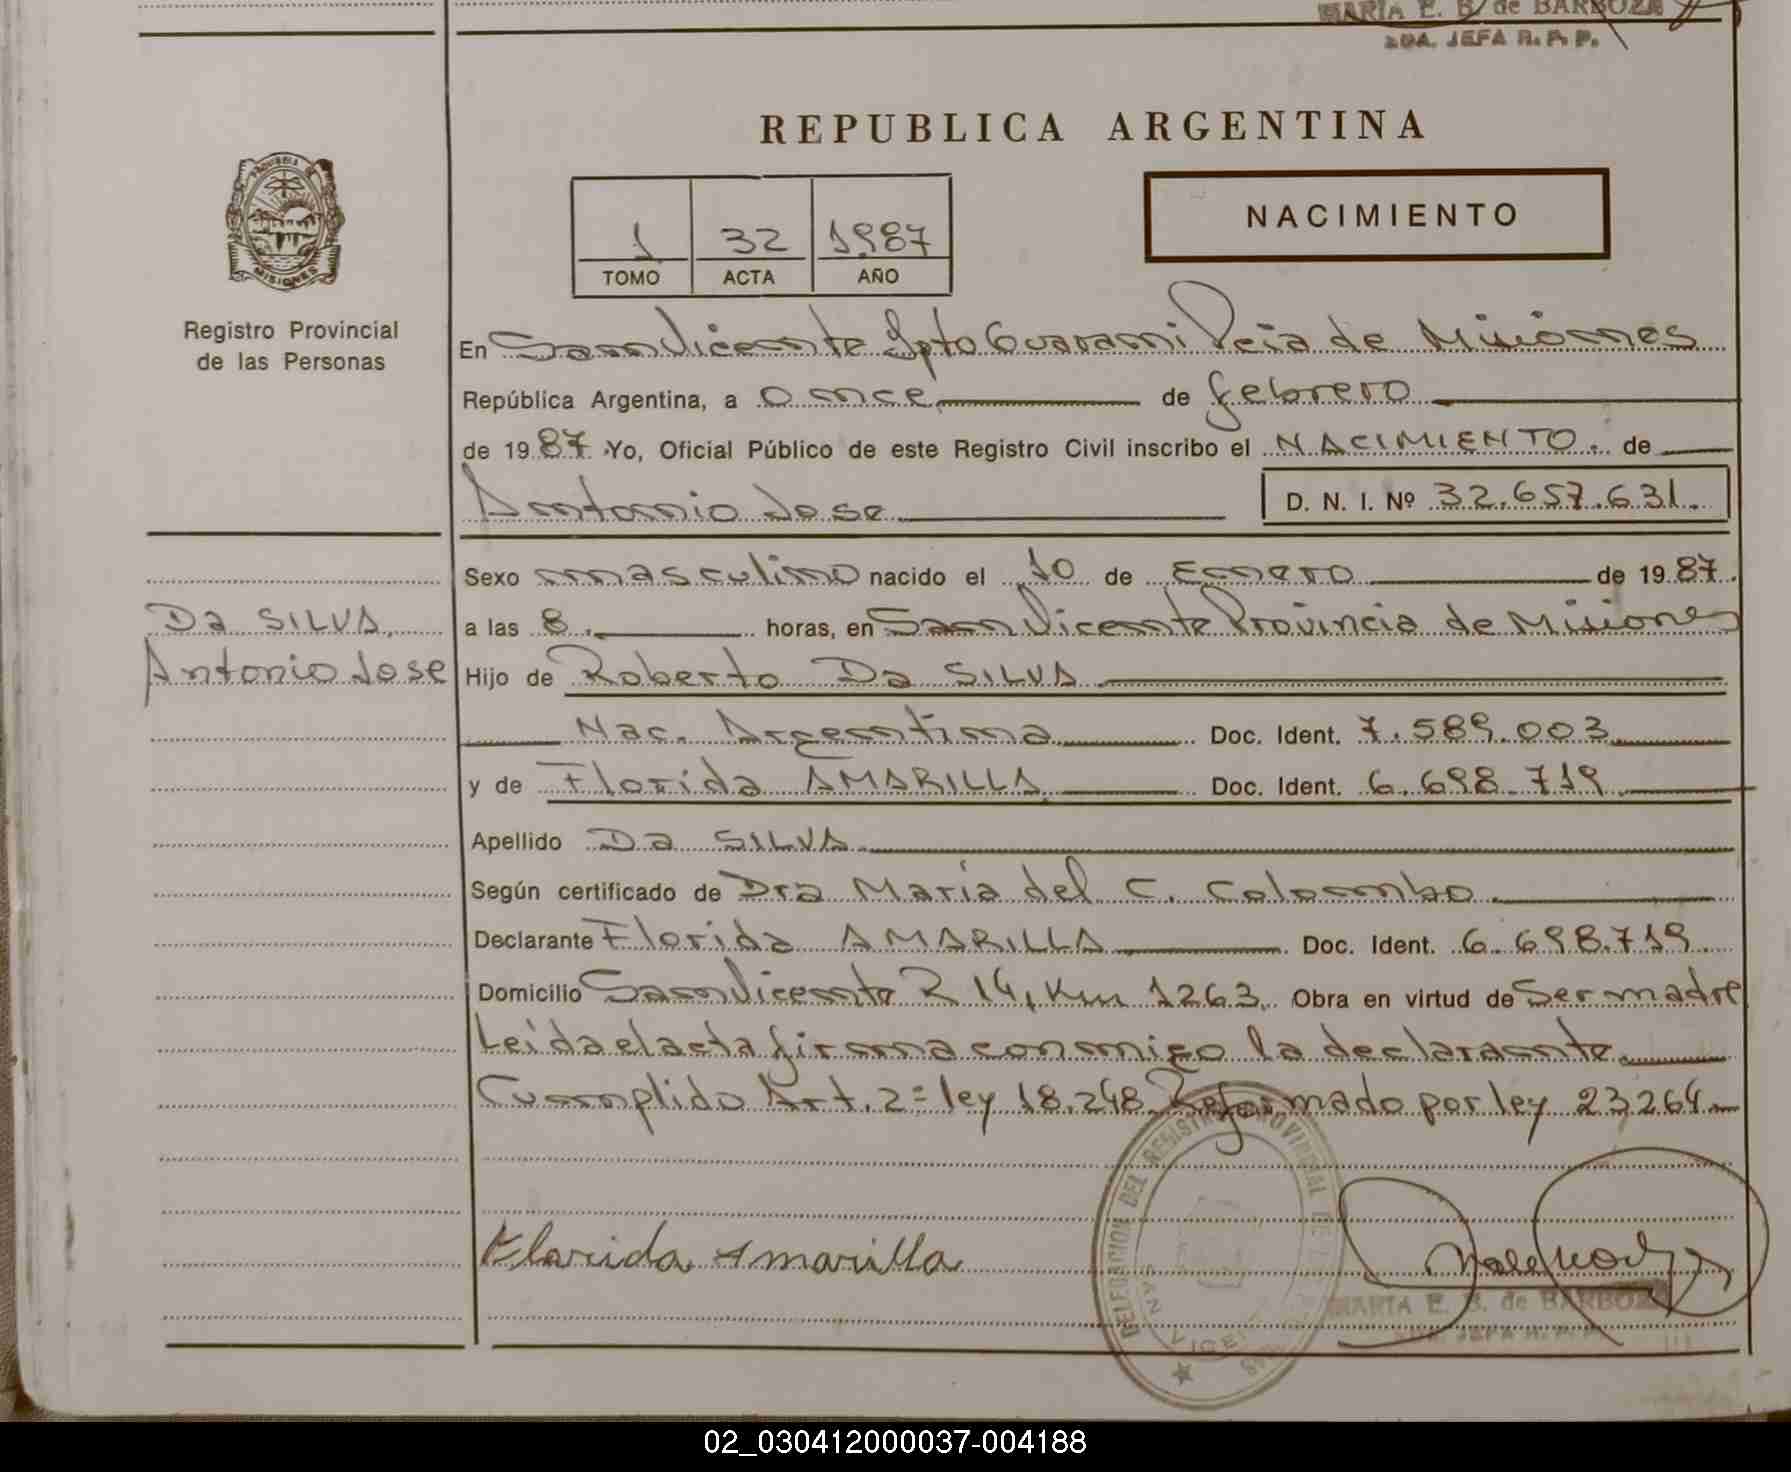 MARIA E. B. de BARBOZA
2DA. JEFA R. P. P.
REPUBLICA ARGENTINA
PROVINCIA
MISIONES
Registro Provincial
de las Personas
1 32 1987
TOMO ACTA AÑO
NACIMIENTO
En San Vicente Dpto Guarani Pcia de Misiones
República Argentina, a once de febrero
de 1987 Yo, Oficial Público de este Registro Civil inscribo el NACIMIENTO. de
Antonio Jose D. N. I. Nº 32.657.631.
Sexo masculino nacido el 10 de Enero de 1987.
Da SILVA,
Antonio Jose
a las 8. horas, en San Vicente Provincia de Misiones
Hijo de Roberto Da SILVA
Nac. Argentina Doc. Ident. 7.589.003
y de Florida AMARILLA Doc. Ident. 6.698.719
Apellido Da SILVA
Según certificado de Dra María del C. Colombo
Declarante Florida AMARILLA Doc. Ident. 6.698.719
Domicilio San Vicente R 14, Km 1263. Obra en virtud de Ser madre
Leida el acta firma conmigo la declarante.
Cumplido Art. 2= ley 18.248 Reformado por ley 23264
Florida Amarilla
DELEGACION DEL REGISTRO PROVINCIAL DE
SAN VICENTE
MARIA E. B. de BARBOZA
2DA. JEFA R. P. P.
02_030412000037-004188